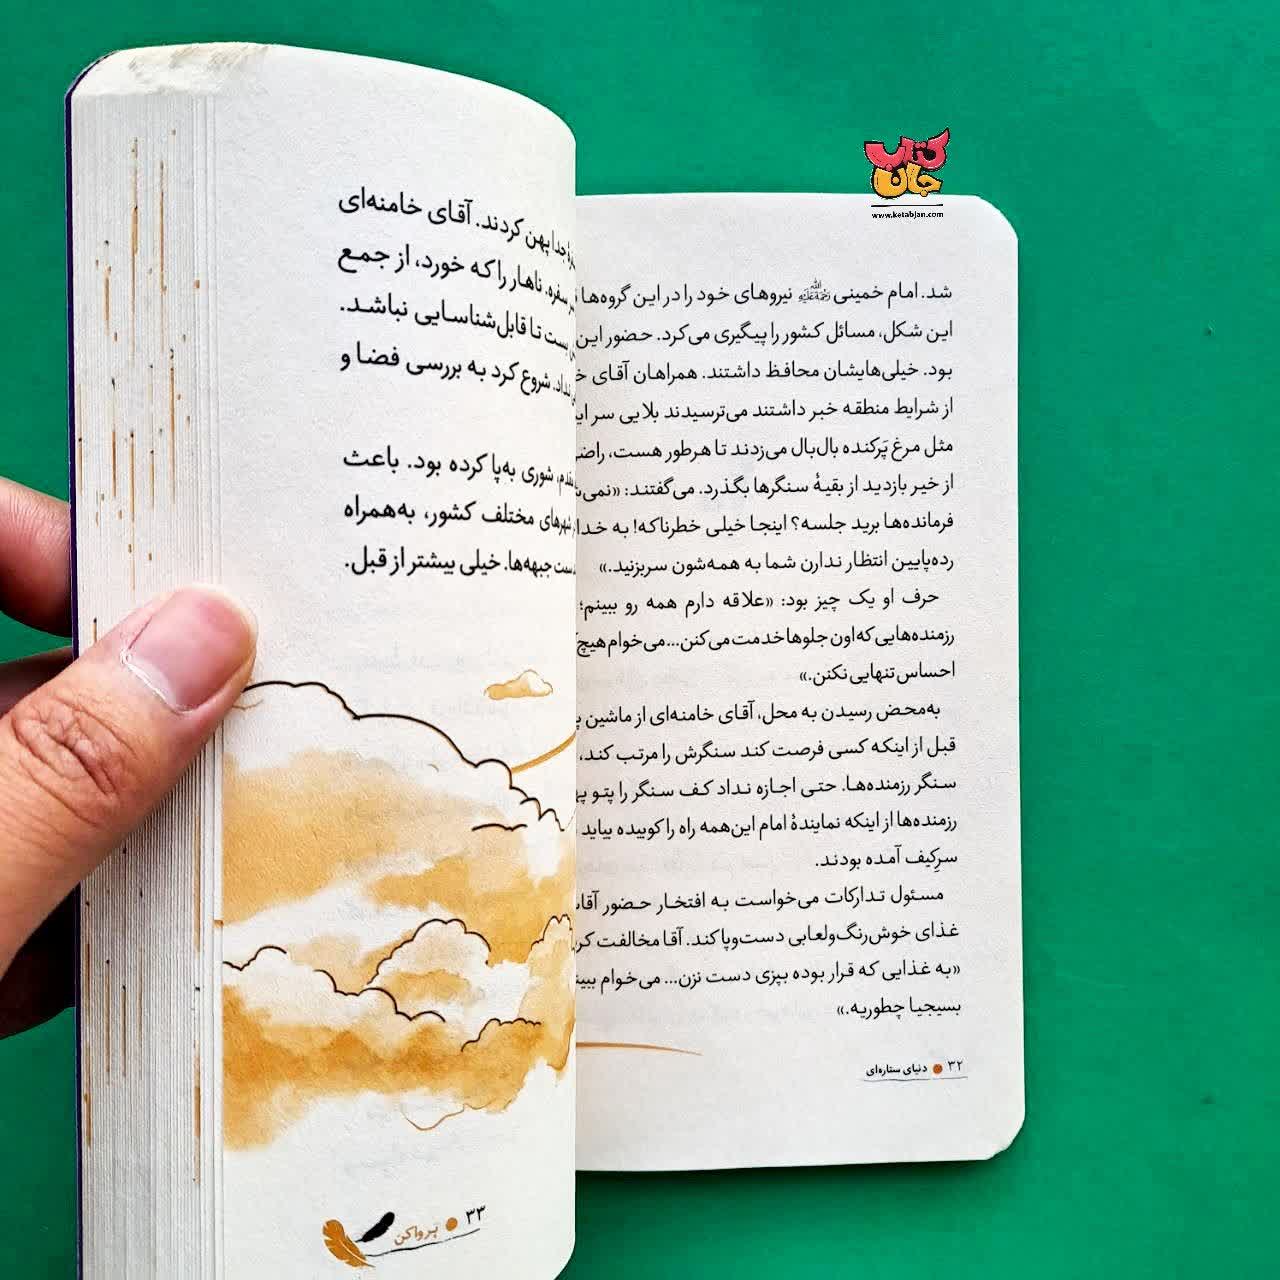 کتاب جان
www.ketabjan.com
شد. امام خمینی نیروهای خود را در این گروه‌ها
این شکل، مسائل کشور را پیگیری می‌کرد. حضور این
بود. خیلی‌هایشان محافظ داشتند. همراهان آقای
از شرایط منطقه خبر داشتند می‌ترسیدند بلایی سر
مثل مرغ پَرکنده بال‌بال می‌زدند تا هرطور هست،
از خیر بازدید از بقیهٔ سنگرها بگذرد. می‌گفتند:
فرمانده‌ها برید جلسه؟ اینجا خیلی خطرناکه! به خدا
رده‌پایین انتظار ندارن شما به همه‌شون سربزنید.»
حرف او یک چیز بود: «علاقه دارم همه رو ببینم؛
رزمنده‌هایی که اون جلوها خدمت می‌کنن... می‌خوام
احساس تنهایی نکنن.»
به‌محض رسیدن به محل، آقای خامنه‌ای از ماشین
قبل از اینکه کسی فرصت کند سنگرش را مرتب کند،
سنگر رزمنده‌ها. حتی اجازه نداد کف سنگر را پتو
رزمنده‌ها از اینکه نمایندهٔ امام این‌همه راه را کوبیده بیاید
سرِکیف آمده بودند.
مسئول تدارکات می‌خواست به افتخار حضور
غذای خوش‌رنگ‌ولعابی دست‌وپا کند. آقا مخالفت
«به غذایی که قرار بوده بپزی دست نزن... می‌خوام
بسیجیا چطوریه.»
۳۲ دنیای ستاره‌ای
جدا پهن کردند. آقای خامنه‌ای
سفره. ناهار را که خورد، از جمع
تا قابل‌شناسایی نباشد.
نداد. شروع کرد به بررسی فضا و
شوری به‌پا کرده بود. باعث
شهرهای مختلف کشور، به‌همراه
جبهه‌ها. خیلی بیشتر از قبل.
۳۳ پرواکن